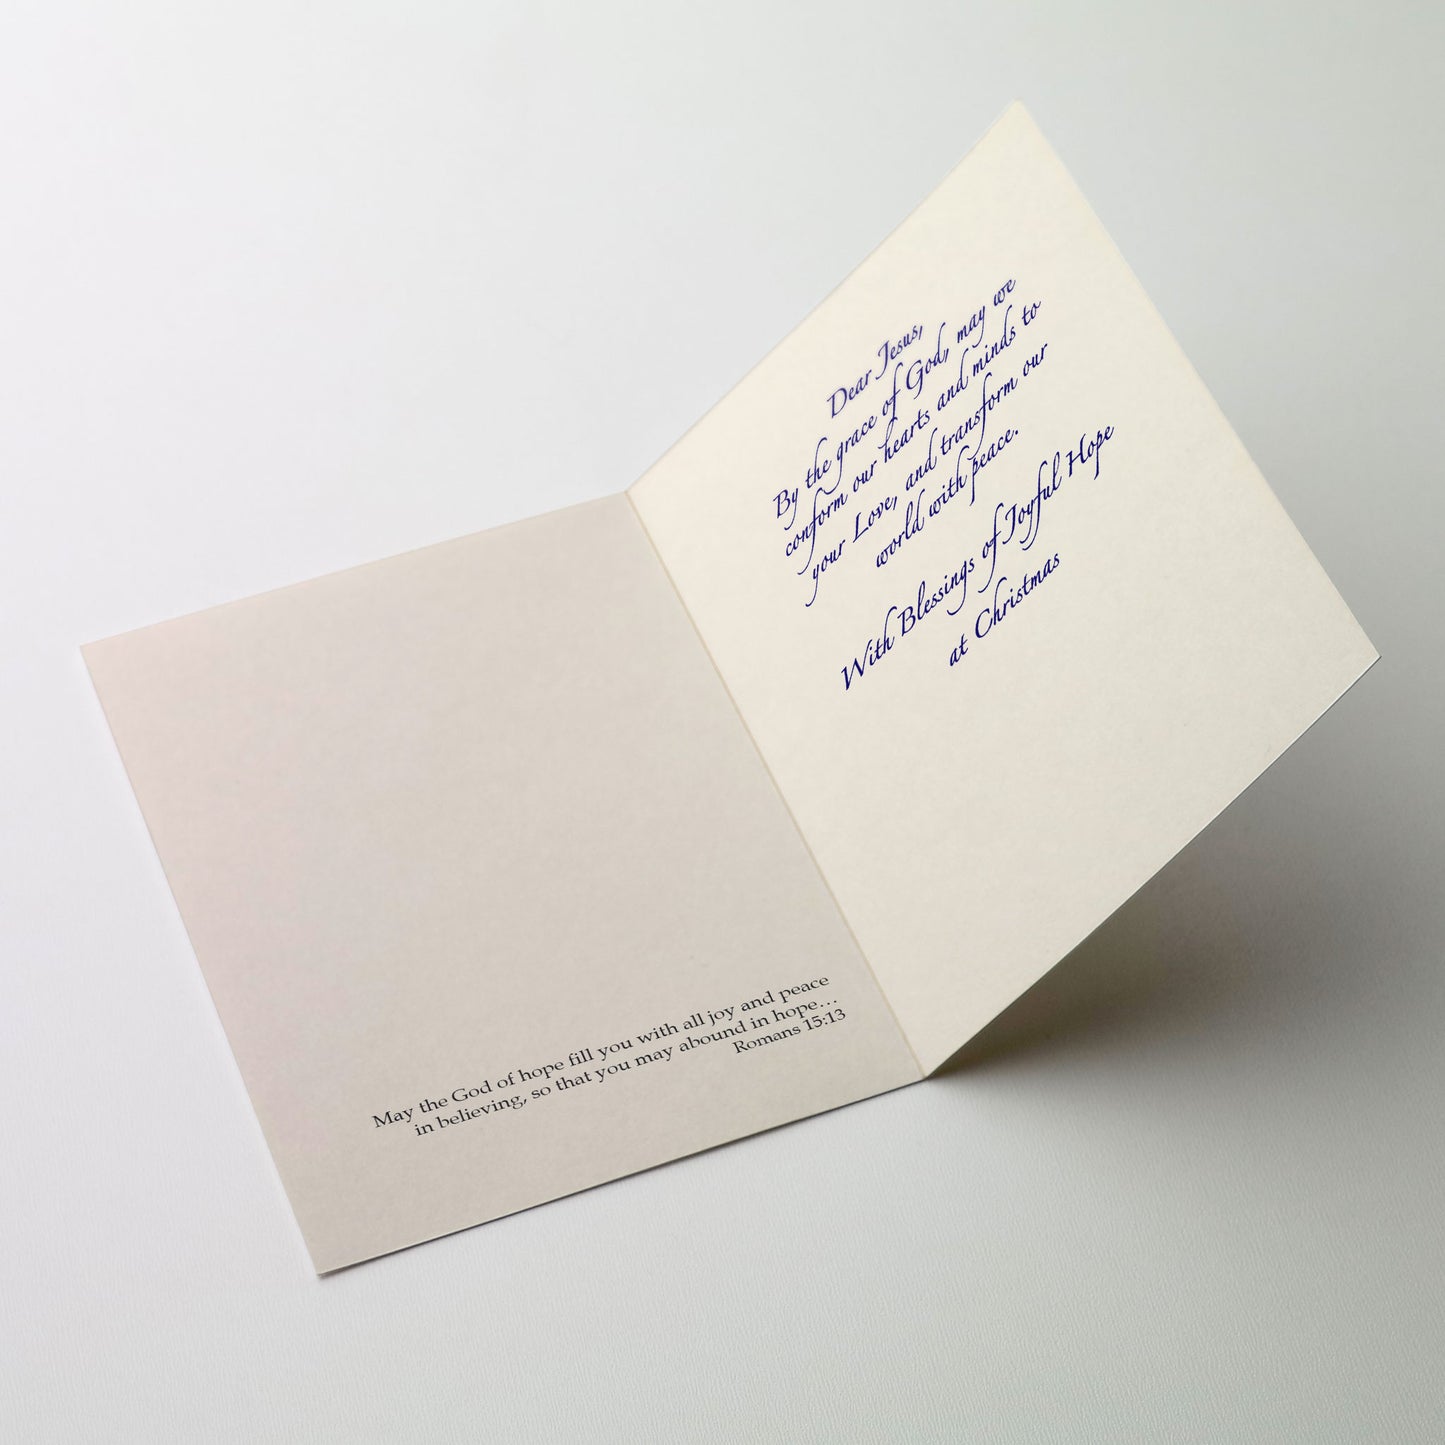 May the God of hope fill you with all joy and peace
in believing, so that you may abound in hope…
Romans 15:13
Dear Jesus,
By the grace of God, may we
conform our hearts and minds to
your Love, and transform our
world with peace.
With Blessings of Joyful Hope
at Christmas